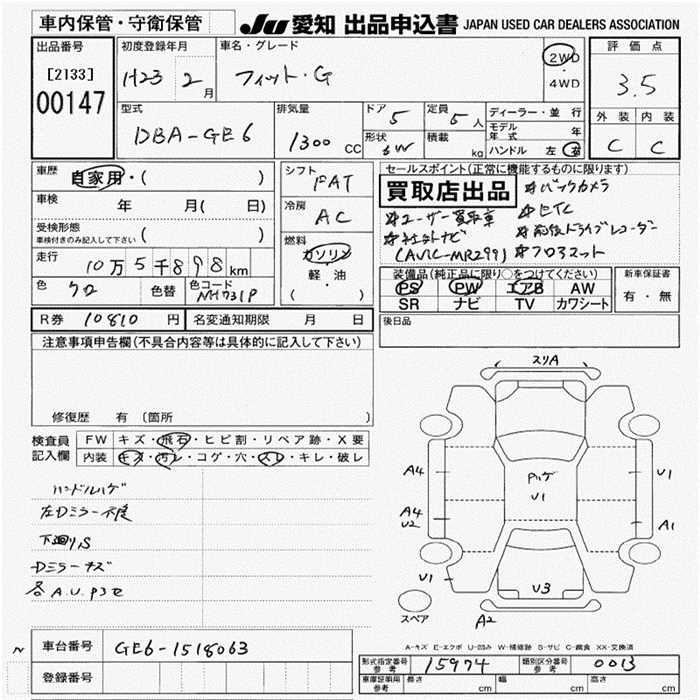 車内保管・守衛保管
JU 愛知 出品申込書 JAPAN USED CAR DEALERS ASSOCIATION
出品番号
[2133]
00147
初度登録年月
H23 2月
車名・グレード
フィット・G
2WD
・
4WD
評価点
3.5
外装 内装
C C
型式
DBA-GE6
排気量
1300 CC
ドア
5
定員
5人
形状
SW
積載
kg
ディーラー・並行
モデル年式 年
ハンドル 左・右
車歴
自家用・( )
車検
年 月( 日)
受検形態
車検付きのみ記入して下さい( )
走行
10万5千898km
色
クロ
色替
色コード
NH731P
シフト
FAT
冷房
AC
燃料
ガソリン
軽・油
( )
セールスポイント(正常に機能するものに限ります)
買取店出品
※バックカメラ
※ユーザー買取車
※ETC
※社外ナビ
※前後ドライブレコーダー
(AVIC-MRZ99)
※フロアマット
装備品(純正品に限り○をつけてください)
PS PW エアB AW
SR ナビ TV カワシート
新車保証書
有・無
R券 10810円
名変通知期限 月 日
後日品
注意事項申告欄(不具合内容等は具体的に記入して下さい)
修復歴 有 〔箇所 〕
検査員
記入欄
FW キズ・飛石・ヒビ割・リペア跡・X要
内装 キズ・汚レ・コゲ・穴・スレ・キレ・破レ
ハンドルハゲ
左Dミラー不良
下廻りS
Dミラーキズ
各A.U.Pヨセ
スリA
A4
U1
Pハゲ
U1
A4
U2
A1
U1
U3
スペア
A2
A-キズ E-エクボ U-凹み W-補修跡 S-サビ C-腐食 XX-交換済
N
車台番号
GE6-1518063
登録番号
形式指定番号
参考
15974
類別区分番号
参考
0013
車庫証明用
参考
長さ cm 幅 cm 高さ cm